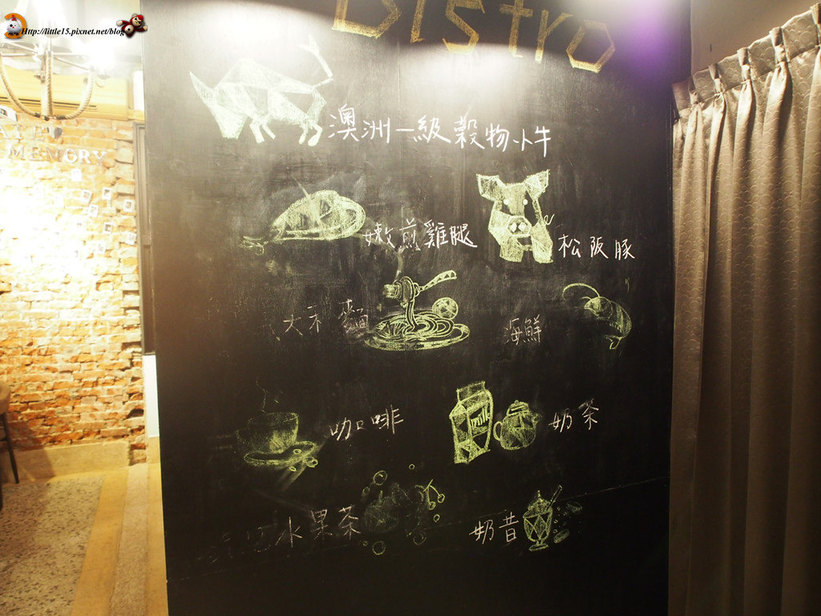 Http://little15.pixnet.net/blog
Bistro
MEMORY
澳洲一級穀物小牛
嫩煎雞腿
松阪豚
義大利麵
海鮮
咖啡
milk
奶茶
水果茶
奶昔